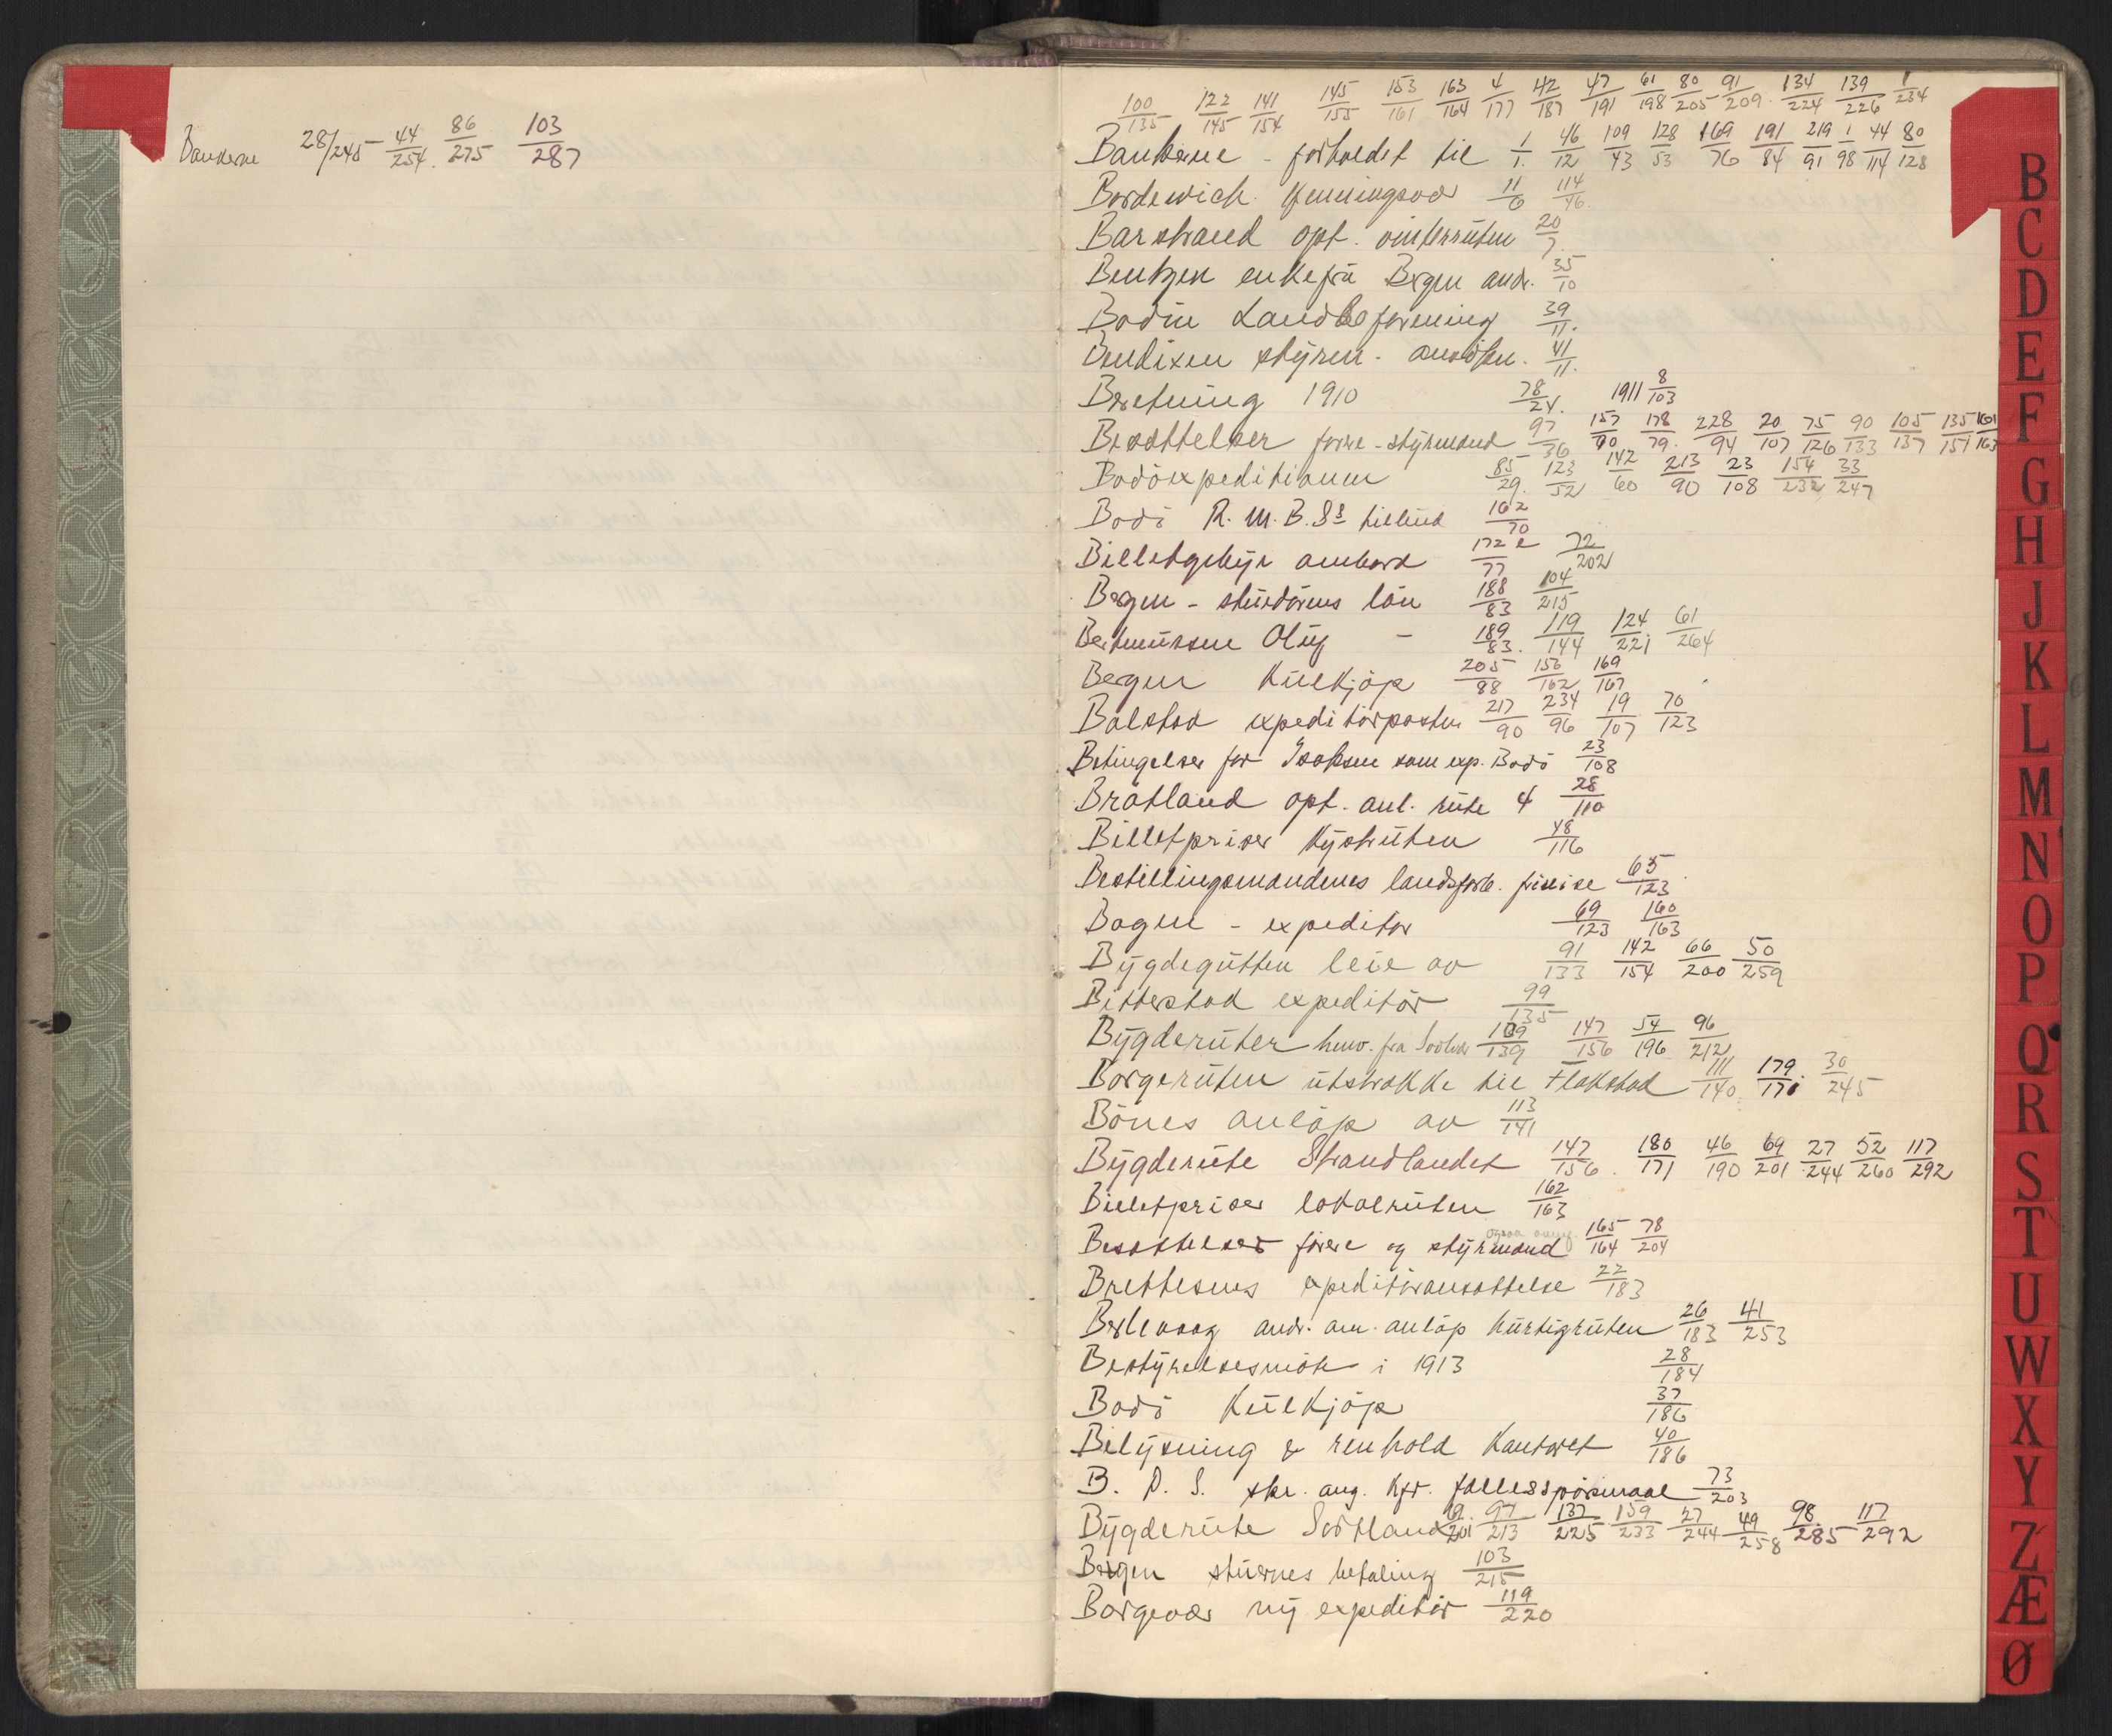 Bankerne 28/245 44/254. 86/275 103/287
100/135 122/145 141/154 145/155 153/161 163/164 4/177 42/187 47/191 61/198 80/205 91/209. 134/224 139/226 1/234
Bankerne - forholdet til 1/1. 46/12 109/43 128/53 169/76 191/84 219/91 1/98 44/114 80/128
Bordewich Henningsvær 11/6 114/46.
Barstrand opt. vinterrüten 20/7.
Bentzen enkefrü Bergen andr. 35/10
Bodin Landboforening 39/11.
Bendixen stÿrm. ansættn. 41/11.
Beretning 1910 78/24. 1911 8/103
Besættelser førere-stÿrmænd 97/36 157/70 178/79. 228/94 20/107 75/126 90/133 105/137 135/151 161/163
Bodöexpeditionen 85/29. 123/52 142/60 213/90 23/108 154/232 33/247
Bodö R. M. B. Ss tilbüd 162/70
Billetgebÿr ombord 172 e/77 72/202
Bergen - stüedørens lön 188/83 104/215
Bertnüssen Olüf - 189/83. 119/144 124/221 61/264
Bergen Külkjöp 205/88 156/162 169/167
Balstad expeditörposten 217/90 234/96 19/107 70/123
Betingelser for Isaksen som exp. Bodö 23/108
Bratland opt. anl. rüte 4 28/110
Billetpriser Kÿstrüten 48/116
Bestillingsmændenes landsforb. frireise 65/123
Bogen - expeditør 69/123 160/163
Bÿgdegütten leie av 91/133 142/154 66/200 50/259
Bitterstad expeditör 99/135
Bÿgderüter henv. fra Svolvær 109/139 147/156 54/196 96/212
Borgerüten ütstrakke til Flakstad 111/140. 179/170. 30/245
Bönes anlöp av 113/141
Bÿgderüte Strandlandet 147/156. 180/171 46/190 69/201 27/244 52/260 117/292
Billetpriser lokalrüten 162/163
Besættelser förere og stÿrmænd 165/164 78/204
Brettesnes expeditöransættelse 22/183
Berlevaag andr. om. anlöp Hürtigrüten 26/183 41/253
Bestÿrelsesmöte i 1913 28/184
Bodö Külkjöp 37/186
Belÿsning & renhold Kontoret 40/186
B. D. S. skr. ang. Kfr. fællesspörsmaal 73/203
Bÿgderüte Sortland 69/201. 97/213 137/225 159/233 27/244 49/258 98/285 117/292
Bergen stüernes betaling 103/215
Borgevær nÿ expeditör 119/220
B
C
D
E
F
G
H
J
K
L
M
N
O
P
Q
R
S
T
U
W
X
Y
Z
Æ
Ø